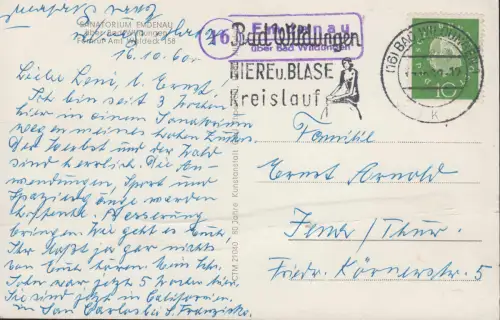 SANATORIUM EMDENAU
über Bad Wildungen
Fernruf: Amt Waldeck 158
16.10.60.
Liebe Leni, l. Ernst!
Ich bin seit 3 Wochen
hier in einem Sanatorium
wegen meines hohen Zuckers.
Der Herbst und der Wald
sind herrlich. Die An-
wendungen, Sport und
Spaziergänge werden
hoffentl. Besserung
bringen. Wie geht es Euch?
Ihr laßt ja gar nichts
von Euch hören. Mein
John war jetzt 5 Wochen hier.
Sie sind jetzt in Californien.
in San Carlos b. S. Franzisko.
CTM 21040 · 80 Jahre Kunstanstalt
(16) Emdenau
über Bad Wildungen
Bad Wildungen
NIERE u. BLASE
Kreislauf
(16) BAD WILDUNGEN
k
10
Familie
Ernst Arnold
Jena/Thür.
Friedr. Körnerstr. 5